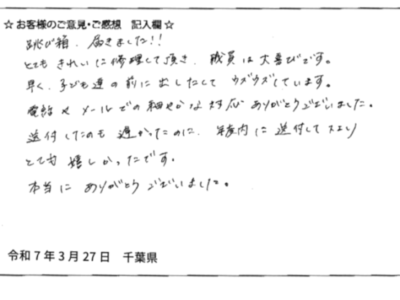 ☆お客様のご意見・ご感想 記入欄☆
跳び箱、届きました!!
とてもきれいに修理して頂き、職員は大喜びです。
早く、子ども達の前に出したくて ウズウズしています。
電話やメールでの細やかな対応 ありがとうございました。
送付したのも遅かったのに、年内に送付して
とても嬉しかったです。
本当に ありがとうございました。
令和7年3月27日 千葉県